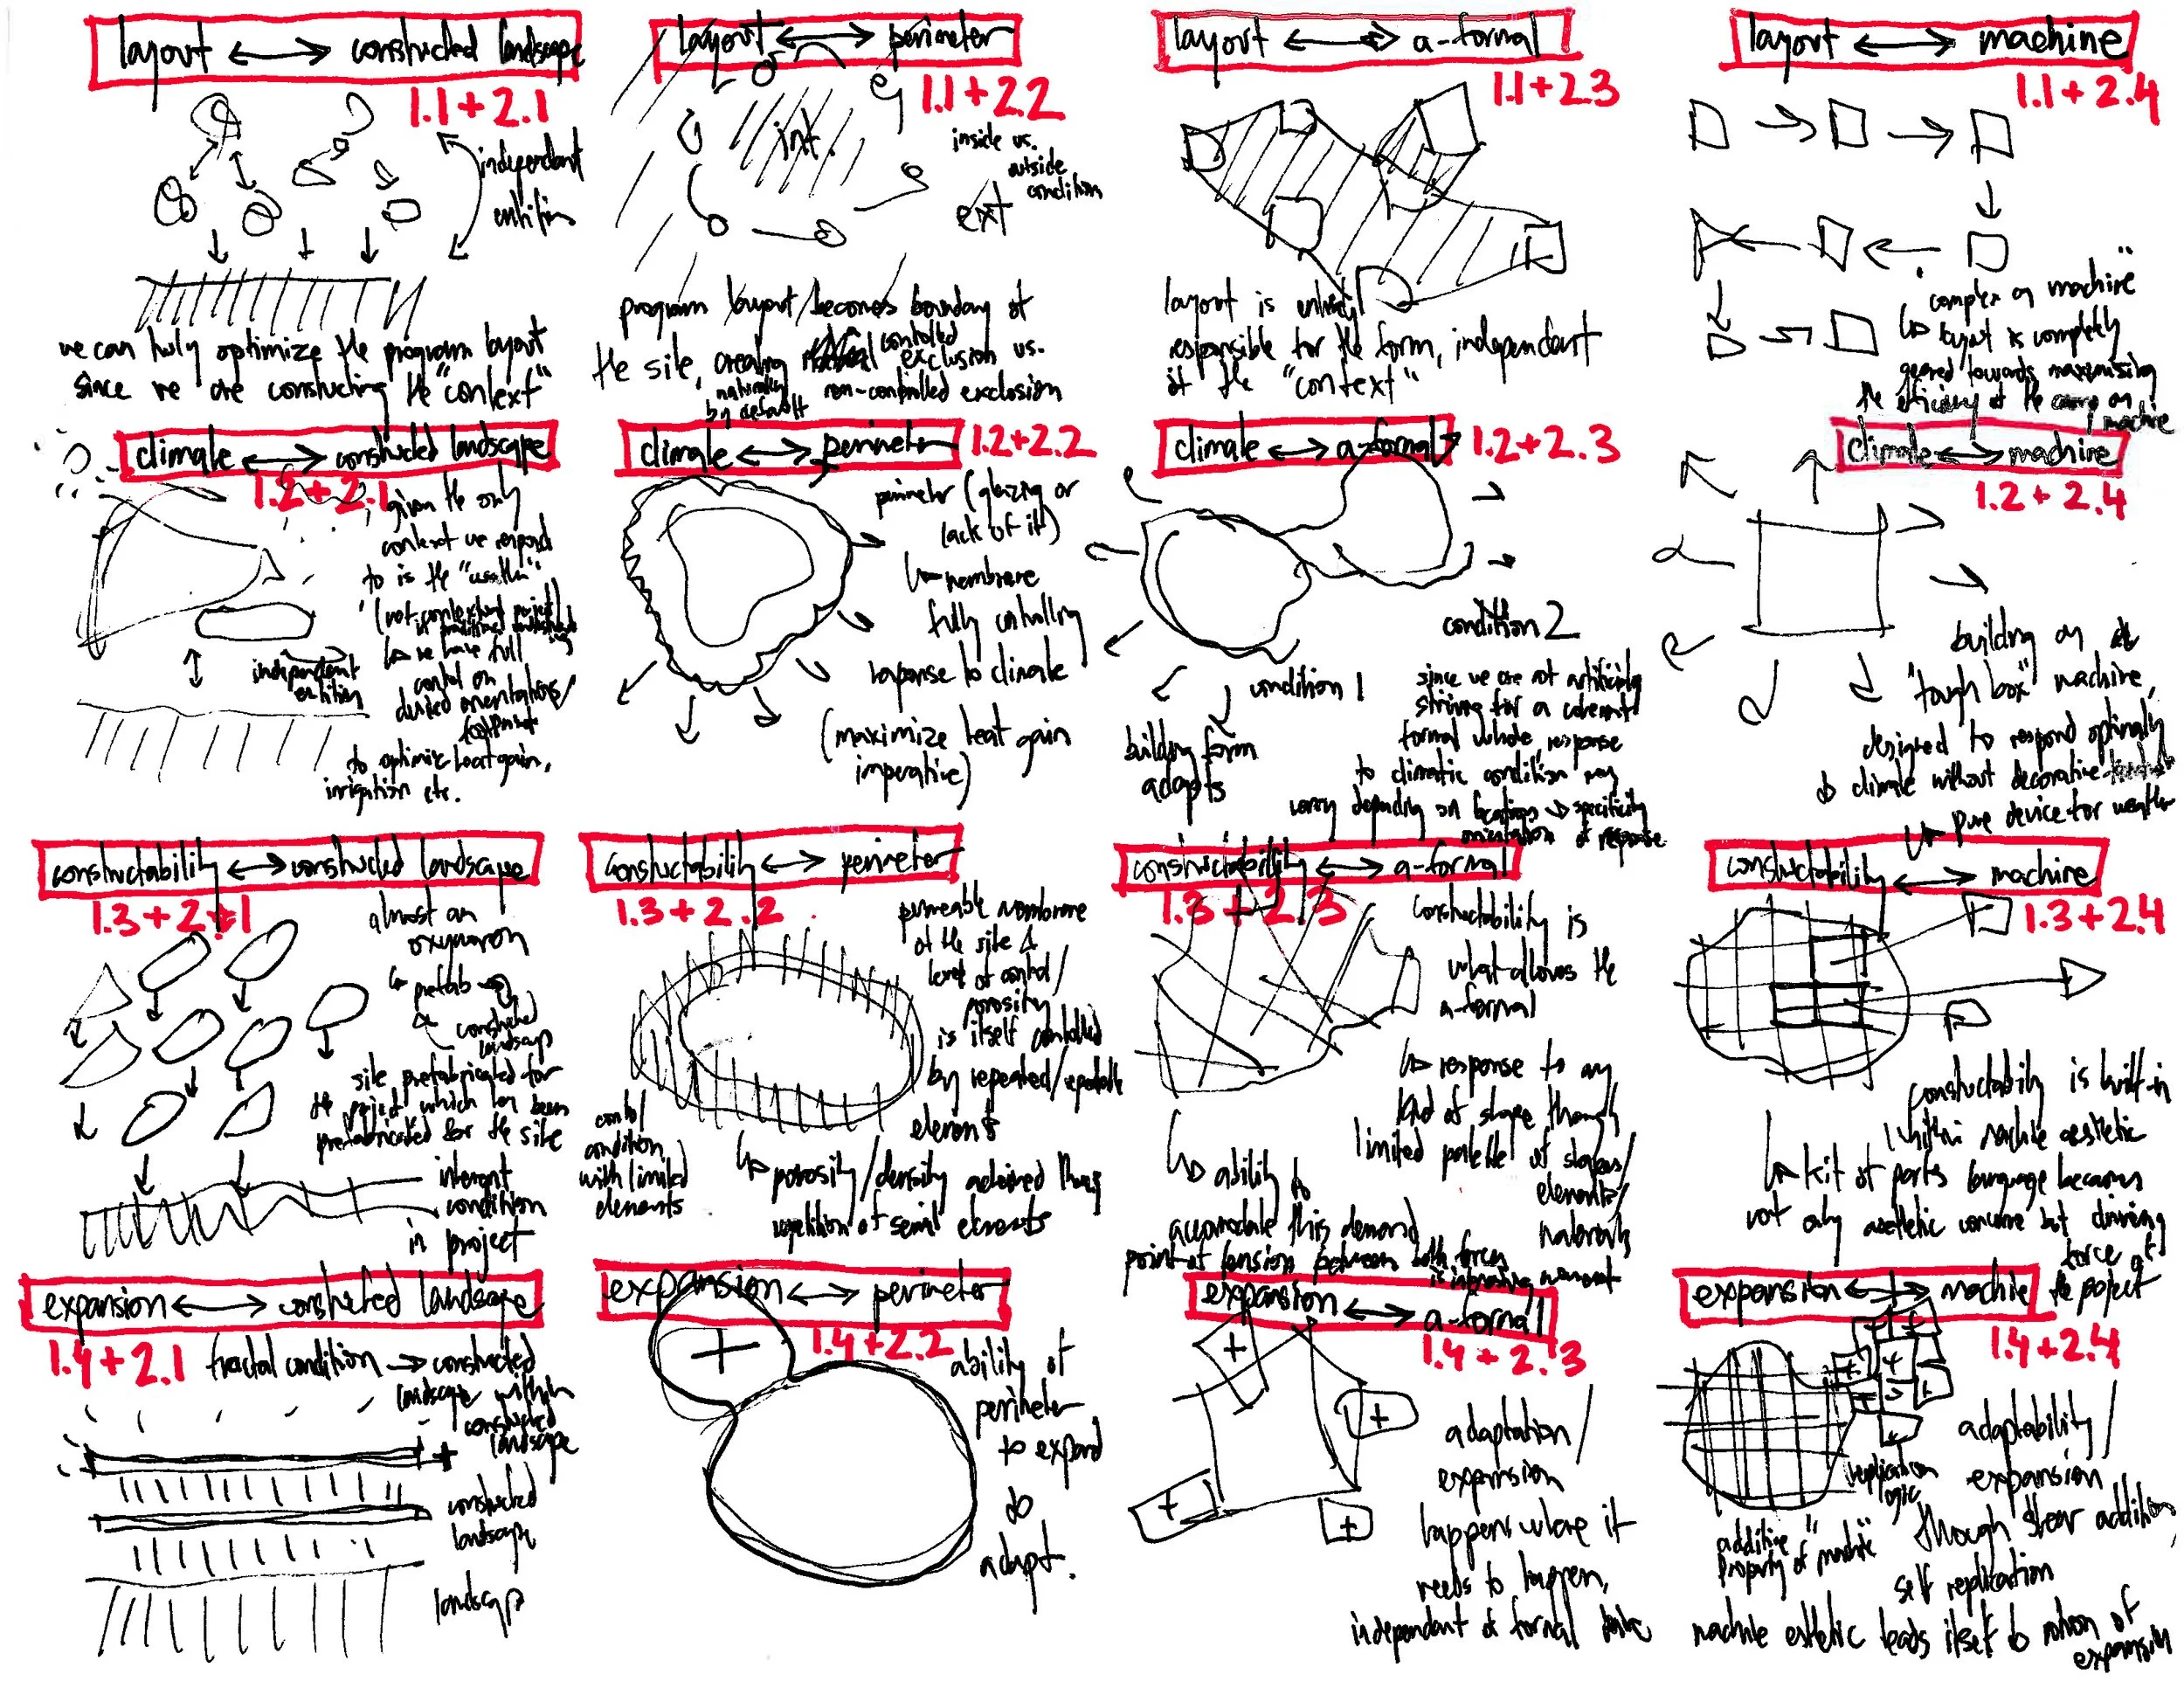 layout ↔ constructed landscape
1.1 + 2.1
independant
entities
we can fully optimize the program layout
since we are constructing the "context"
layout ↔ perimeter
1.1 + 2.2
int.
inside vs.
outside
condition
ext
program layout becomes boundary of
the site, creating controlled exclusion vs.
naturally
by default
non-controlled exclosion
layout ↔ a-formal
1.1 + 2.3
layout is entirely
responsible for the form, independant
of the "context"
layout ↔ machine
1.1 + 2.4
"complex as machine"
↳ layout is completely
geared towards maximising
the efficiency of the as
machine
climate ↔ constructed landscape
1.2 + 2.1
given the only
context we respond
to is the "weather"
(not contextual project
in traditional
↳ we have full
control on
desired orientations/
footprint
to optimize heat gain,
irrigation etc.
independant
entities
climate ↔ perimeter
1.2 + 2.2
perimeter (glazing or
lack of it)
↳ membrane
fully controlling
response to climate
(maximize heat gain
imperative)
climate ↔ a-formal
1.2 + 2.3
condition 2
condition 1
building form
adapts
since we are not artificially
striving for a coherent
formal whole, response
to climatic condition may
vary depending on location → specificity
orientation of response
climate ↔ machine
1.2 + 2.4
building as
"tough box" machine,
designed to respond optimally
to climate without decorative
↳ pure device for weather
constructability ↔ constructed landscape
1.3 + 2.1
almost an
oxymoron
↳ prefab
constructed
landscape
site prefabricated for
the project which has been
prefabricated for the site
inherent
condition
in project
constuctability ↔ perimeter
1.3 + 2.2
permeable membrane
of the site &
level of control/
porosity
is itself controlled
by repeated/repeatable
elements
control
condition
with limited
elements
↳ porosity/density achieved through
repetition of elements
constructability ↔ a-formal
1.3 + 2.3
constructability is
what allows the
a-formal
↳ response to any
kind of shape through
limited palette of shapes/
elements/
materials
↳ ability to
accomodate this demand
point of tension between both forces
is interesting moment
constuctability ↔ machine
1.3 + 2.4
constuctability is built-in
within machine aesthetic
↳ kit of parts language becomes
not only aesthetic concern but driving
force of
the project
expansion ↔ constructed landscape
1.4 + 2.1
fractal condition → constructed
landscape within
constructed
landscape
constructed
landscape
landscape
expansion ↔ perimeter
1.4 + 2.2
ability of
perimeter
to expand
to
adapt.
expansion ↔ a-formal
1.4 + 2.3
adaptation/
expansion
happens where it
needs to happen,
independant of formal
expansion ↔ machine
1.4 + 2.4
replication
logic
additive
property of "machine"
adaptability/
expansion
through shear addition,
self replication
machine esthetic leads itself to notion of
expansion